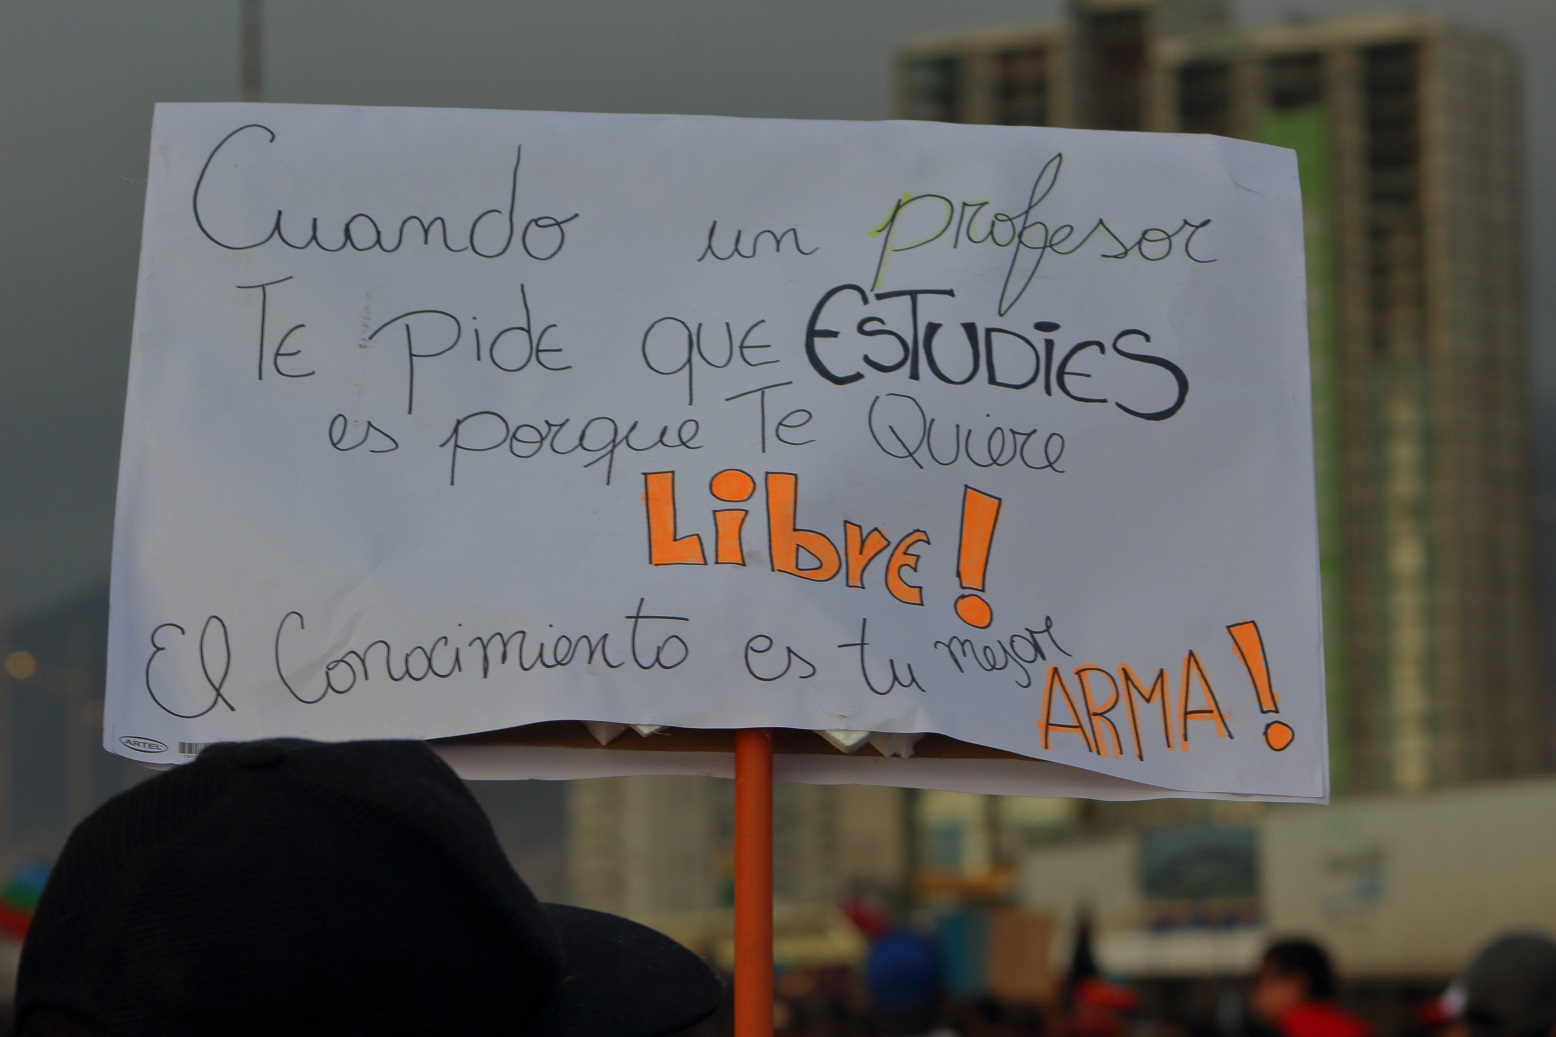 Cuando un profesor
Te pide que ESTUDIES
es porque Te Quiere
Libre!
El Conocimiento es tu mejor
ARMA!
ARTEL